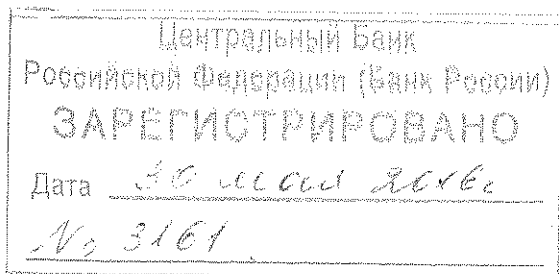 Центральный Банк
Российской Федерации (Банк России)
ЗАРЕГИСТРИРОВАНО
Дата 30 мая 2016г
№ 3161